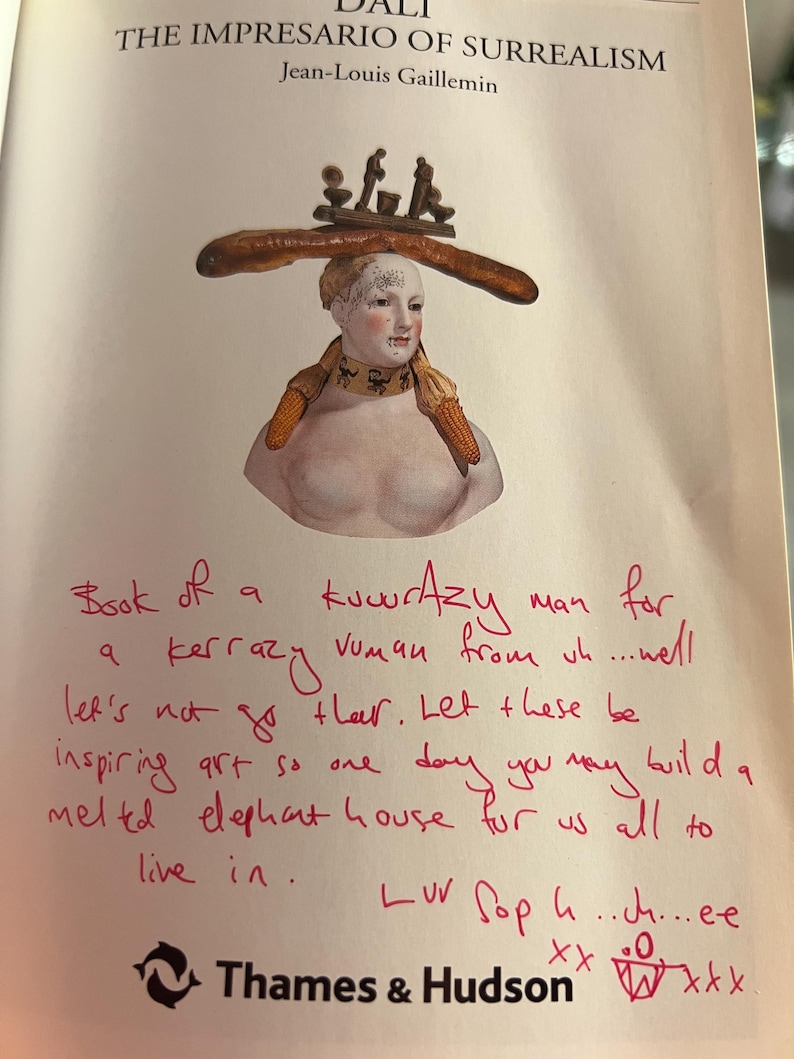 DALÍ
THE IMPRESARIO OF SURREALISM
Jean-Louis Gaillemin
Book of a kuuurAzy man for
a kerrazy vuman from uh ...well
let's not go thear. Let these be
inspiring art so one day you may build a
melted elephant house for us all to
live in.
Luv Soph..uh...ee
xx xxx
Thames & Hudson